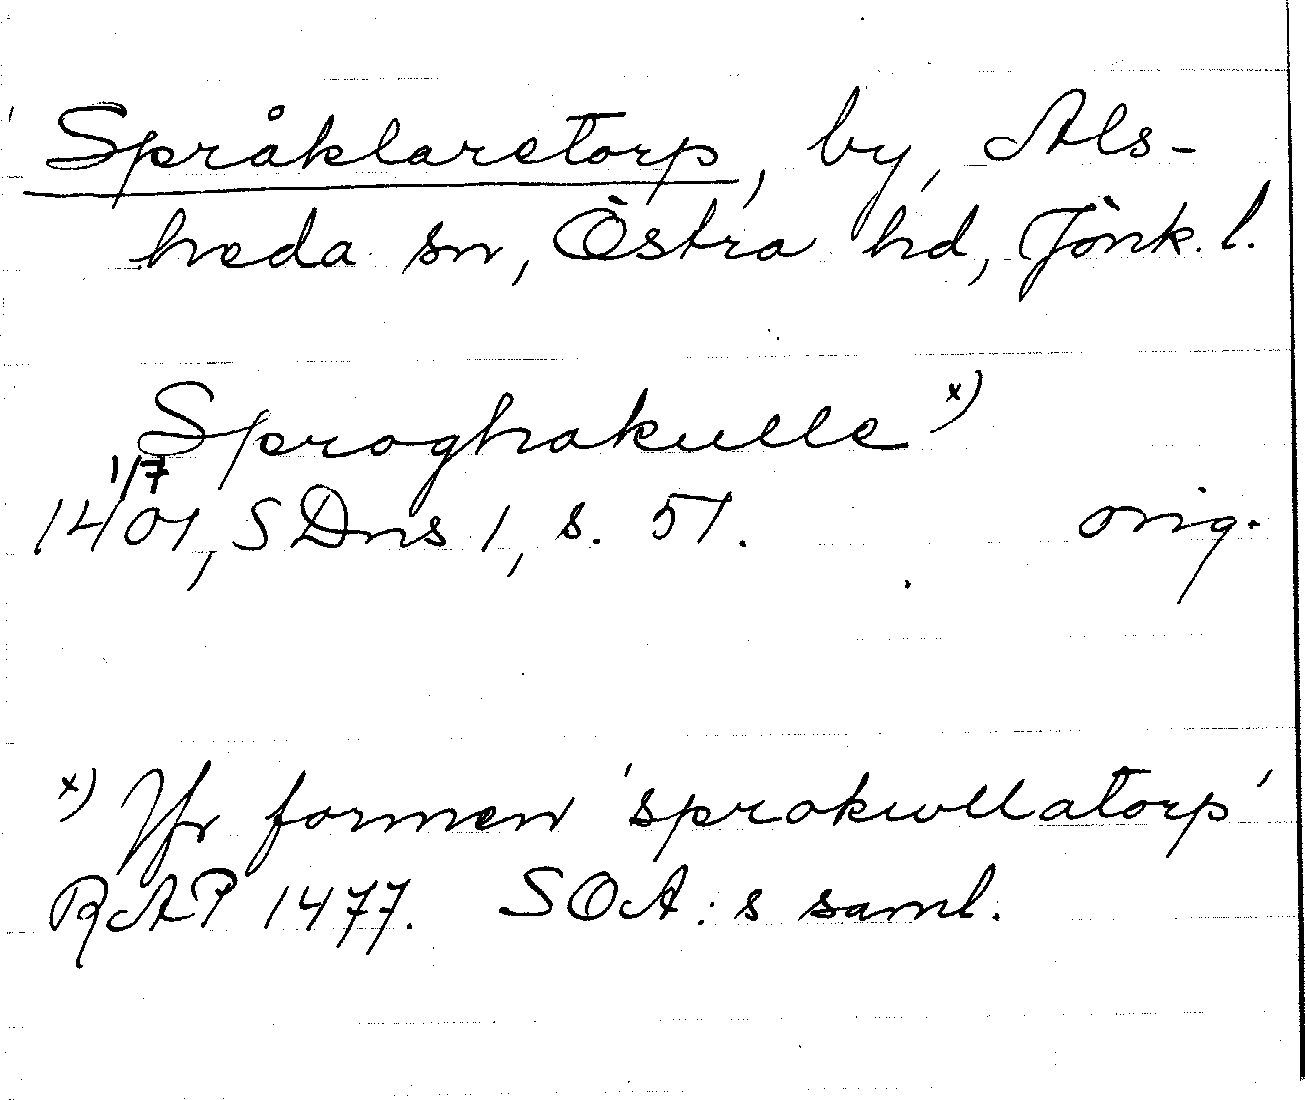 Språklaretorp, by, Als-
heda sn, Östra hd, Jönk. l.
Sproghakulle x)
1/7
1401, SDns 1, s. 51. orig.
x) Jfr formen 'sprakullatorp'
RAP 1477. SOA:s saml.